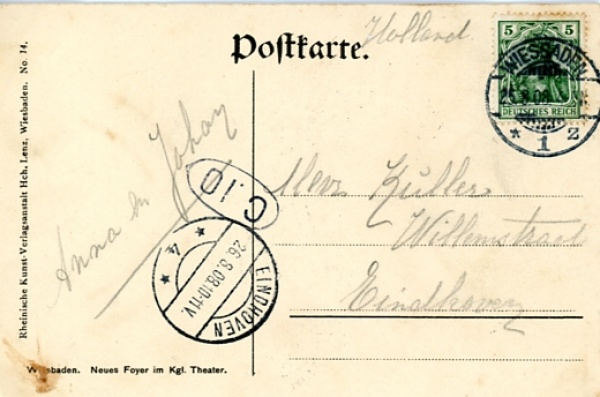 Postkarte.
Holland
5 5
DEUTSCHES REICH
WIESBADEN
* 1 z
Rheinische Kunst-Verlagsanstalt Hch. Lenz, Wiesbaden. No. 14.
Anna en Johan
C 10
EINDHOVEN
26.8.08.10-11V.
* 4 *
Küller
Willemstraat
Eindhoven
Wiesbaden. Neues Foyer im Kgl. Theater.